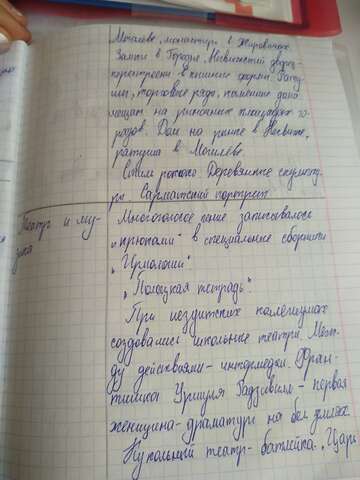 Могилёве, монастырь в Жировичах.
Замки в Городы, Несвижский дворец
перестроены в пышные формы. Рату-
ши, торговые ряды, каменные дома
на рыночных площадях го-
родов. Дом на рынке в Несвиже,
ратуша в Могилёве.
Стиль рококо. Деревянные скульпту-
ры. Сарматский портрет.
Театр и му-
зыка
Многоголосое пение записывалось
"крюками" в специальные сборники
"Ирмологий"
"Полоцкая тетрадь"
При иезуитских коллегиумах
создавались школьные театры. Меж-
ду действиями - интермедии. Фран-
тишка Уршуля Радзивилл - первая
женщина-драматург на бел. землях.
Кукольный театр - батлейка. "Царь